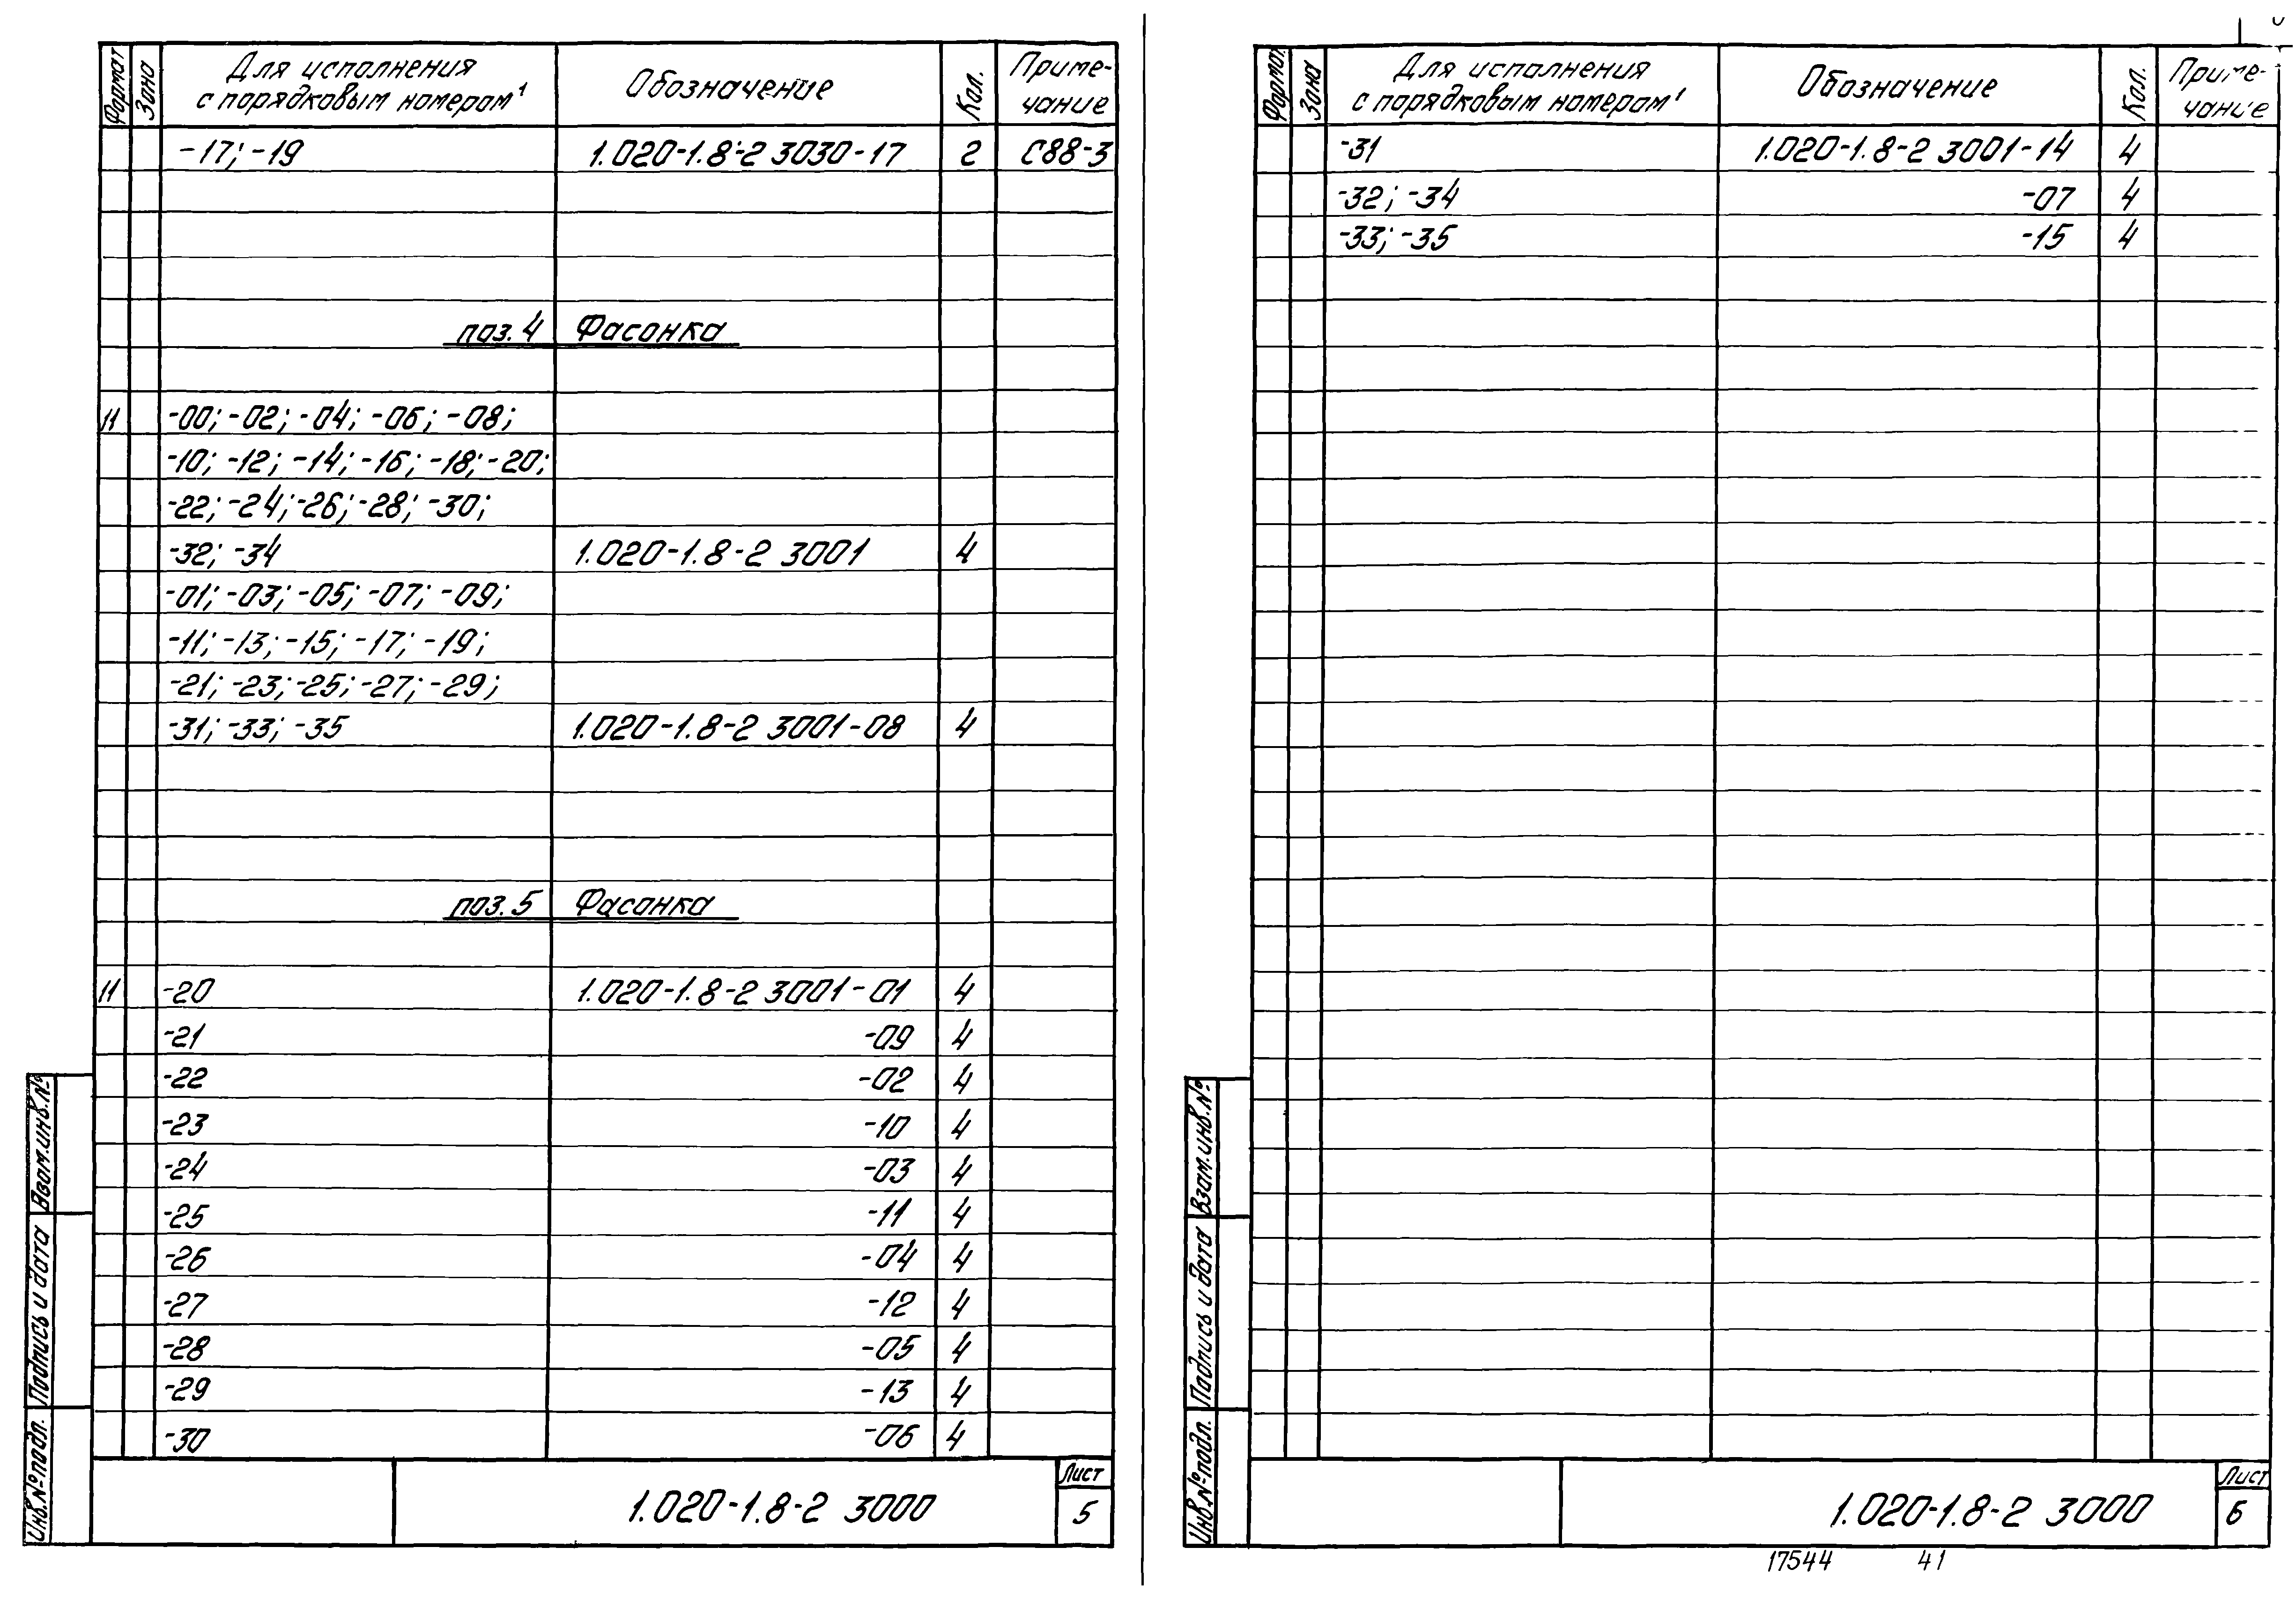 Формат Зона Для исполнения с порядковым номером¹ Обозначение Кол. Примечание
-17; -19 1.020-1.8-2 3030-17 2 С88-3
поз. 4 Фасонка
11 -00; -02; -04; -06; -08;
-10; -12; -14; -16; -18; -20;
-22; -24; -26; -28; -30;
-32; -34 1.020-1.8-2 3001 4
-01; -03; -05; -07; -09;
-11; -13; -15; -17; -19;
-21; -23; -25; -27; -29;
-31; -33; -35 1.020-1.8-2 3001-08 4
поз. 5 Фасонка
11 -20 1.020-1.8-2 3001-01 4
-21 -09 4
-22 -02 4
-23 -10 4
-24 -03 4
-25 -11 4
-26 -04 4
-27 -12 4
-28 -05 4
-29 -13 4
-30 -06 4
Инв.№ подл. Подпись и дата Взам.инв.№
1.020-1.8-2 3000
Лист
5
Формат Зона Для исполнения с порядковым номером¹ Обозначение Кол. Примечание
-31 1.020-1.8-2 3001-14 4
-32; -34 -07 4
-33; -35 -15 4
Инв.№ подл. Подпись и дата Взам.инв.№
1.020-1.8-2 3000
Лист
6
17544 41